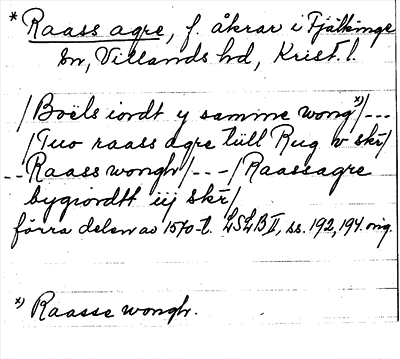 * Raass agre, f. åkrar i Fjälkinge
sn, Villands hd, Krist. l.
/Boëls iordt y samme wong x)/---
/Tuo raass agre tüll Rug v skr/
--Raass wongh/---/Raassagre
bygiordtt iij skr/
förra delen av 1570-t. LSLB II, ss. 192, 194. orig.
x) Raasse wongh.